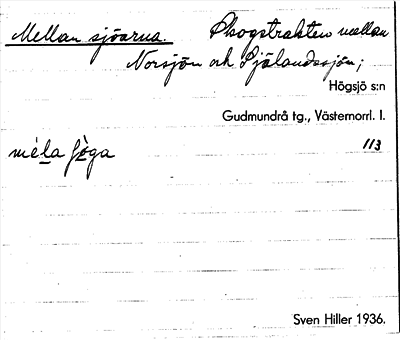 Mellan sjöarna. Skogstrakten mellan
Norsjön och Själandssjön;
Högsjö s:n
Gudmundrå tg., Västernorrl. l.
113
Sven Hiller 1936.